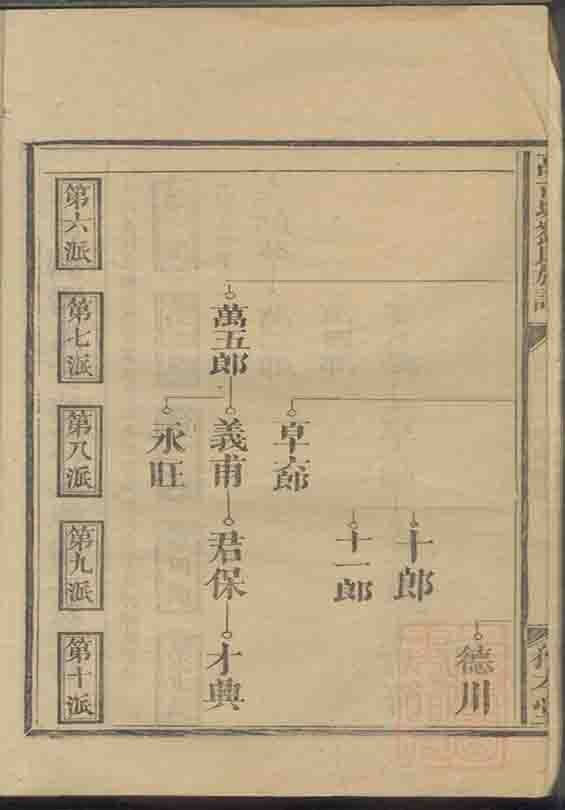 德川
十郎
十一郎
卓六郎
萬五郎
義甫
君保
才興
永旺
第六派
第七派
第八派
第九派
第十派